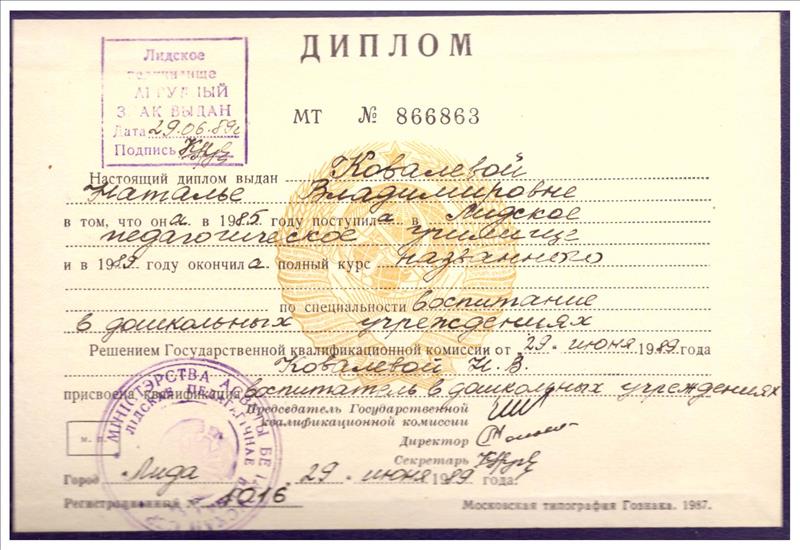 ДИПЛОМ
Лидское
педучилище
НАГРУДНЫЙ
ЗНАК ВЫДАН
Дата 29.06.89г
Подпись
МТ № 866863
Настоящий диплом выдан Ковалевой
Наталье Владимировне
в том, что она в 1985 году поступила в Лидское
педагогическое училище
и в 1989 году окончила полный курс названного
по специальности воспитание
в дошкольных учреждениях
Решением Государственной квалификационной комиссии от 29 июня 1989 года
Ковалевой Н. В.
присвоена квалификация воспитатель в дошкольных учреждениях
Председатель Государственной
квалификационной комиссии
Директор
Секретарь
МІНІСТЭРСТВА АСВЕТЫ
ЛІДСКАЕ ПЕДАГАГІЧНАЕ
М. П.
Город Лида 29 июня 1989 года.
Регистрационный № 5016
Московская типография Гознака. 1987.